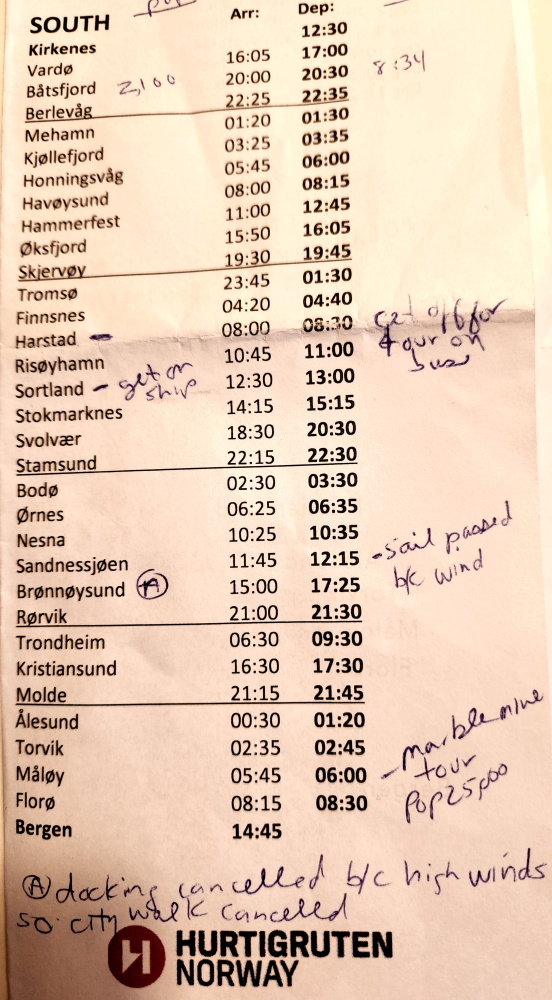 SOUTH Arr: Dep:
Kirkenes 12:30
Vardø 16:05 17:00
Båtsfjord 2,100 20:00 20:30 8:34
Berlevåg 22:25 22:35
Mehamn 01:20 01:30
Kjøllefjord 03:25 03:35
Honningsvåg 05:45 06:00
Havøysund 08:00 08:15
Hammerfest 11:00 12:45
Øksfjord 15:50 16:05
Skjervøy 19:30 19:45
Tromsø 23:45 01:30
Finnsnes 04:20 04:40
Harstad - 08:00 08:30 get off for
tour on
bus
Risøyhamn 10:45 11:00
Sortland - get on
ship 12:30 13:00
Stokmarknes 14:15 15:15
Svolvær 18:30 20:30
Stamsund 22:15 22:30
Bodø 02:30 03:30
Ørnes 06:25 06:35
Nesna 10:25 10:35
Sandnessjøen 11:45 12:15 - sail passed
b/c wind
Brønnøysund A 15:00 17:25
Rørvik 21:00 21:30
Trondheim 06:30 09:30
Kristiansund 16:30 17:30
Molde 21:15 21:45
Ålesund 00:30 01:20
Torvik 02:35 02:45
Måløy 05:45 06:00 - marble mine
tour
pop 25,000
Florø 08:15 08:30
Bergen 14:45
A docking cancelled b/c high winds
so city walk cancelled
HURTIGRUTEN
NORWAY